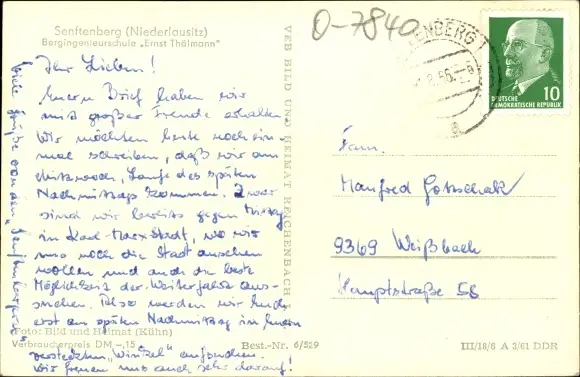 Senftenberg (Niederlausitz)
Bergingenieurschule „Ernst Thälmann"
O-7840
Ihr Lieben!
Euern Brief haben wir
mit großer Freude erhalten.
Wir möchten heute noch ein-
mal schreiben, daß wir am
Mittwoch, Laufe des späten
Nachmittags kommen. Zwar
sind wir bereits gegen Mittag
in Karl-Marx-Stadt, wo wir
uns noch die Stadt ansehen
wollen und auch die beste
Möglichkeit der Weiterfahrt aus-
suchen. Also werden wir Euch
erst am späten Nachmittag in Euern
versteckten „Winkel" aufsuchen.
Wir freuen uns auch sehr darauf!
Viele Grüße von den „Senftenbergern"
(Foto: Bild und Heimat (Kühn)
Verbraucherpreis DM –,15
Best.-Nr. 6/529
VEB BILD UND HEIMAT REICHENBACH
ENBERG 1
10
DEUTSCHE
DEMOKRATISCHE REPUBLIK
Fam.
Manfred Gottschalk
9369 Weißbach
Hauptstraße 58
III/18/6 A 3/61 DDR